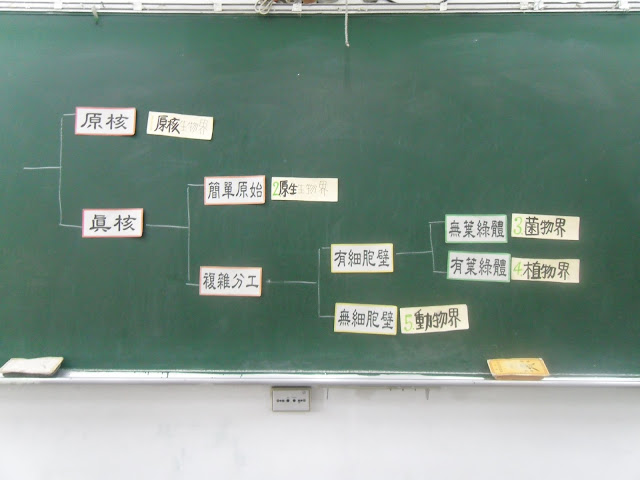 原核
原核生物界
真核
簡單原始
2原生生物界
複雜分工
有細胞壁
無葉綠體
3.菌物界
有葉綠體
4.植物界
無細胞壁
5.動物界